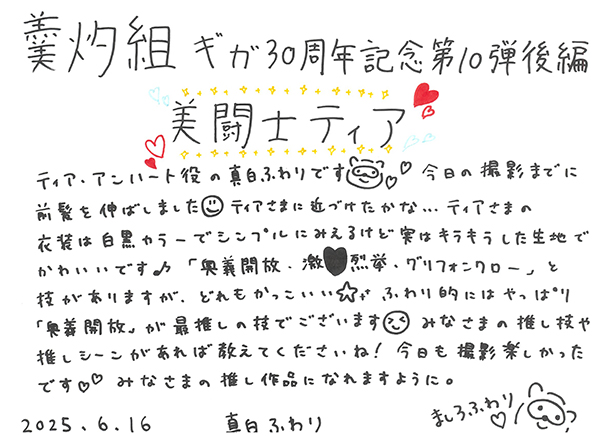 羹灼組 ギガ30周年記念第10弾後編
美闘士ティア
ティア・アンハート役の真白ふわりです 今日の撮影までに
前髪を伸ばしました ティアさまに近づけたかな… ティアさまの
衣装は白黒カラーでシンプルにみえるけど実はキラキラした生地で
かわいいです♪ 「奥義開放・激♥烈挙・グリフォンクロー」と
技がありますが、どれもかっこいい☆ ふわり的にはやっぱり
「奥義開放」が最推しの技でございます みなさまの推し技や
推しシーンがあれば教えてくださいね! 今日も撮影楽しかった
です♡♡ みなさまの推し作品になれますように。
2025.6.16 真白ふわり ましろふわり♡